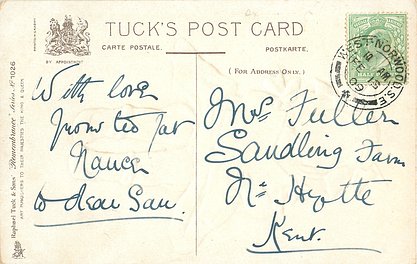 TUCK'S POST CARD
CARTE POSTALE.
POSTKARTE.
BY APPOINTMENT
(FOR ADDRESS ONLY.)
Raphael Tuck & Sons' "Remembrance" Series Nº 1026
ART PUBLISHERS TO THEIR MAJESTIES THE KING & QUEEN
WEST NORWOOD S.E.
FE
With love
from
to dear
Mrs Fuller
Sandling Farm
Nr
Kent.